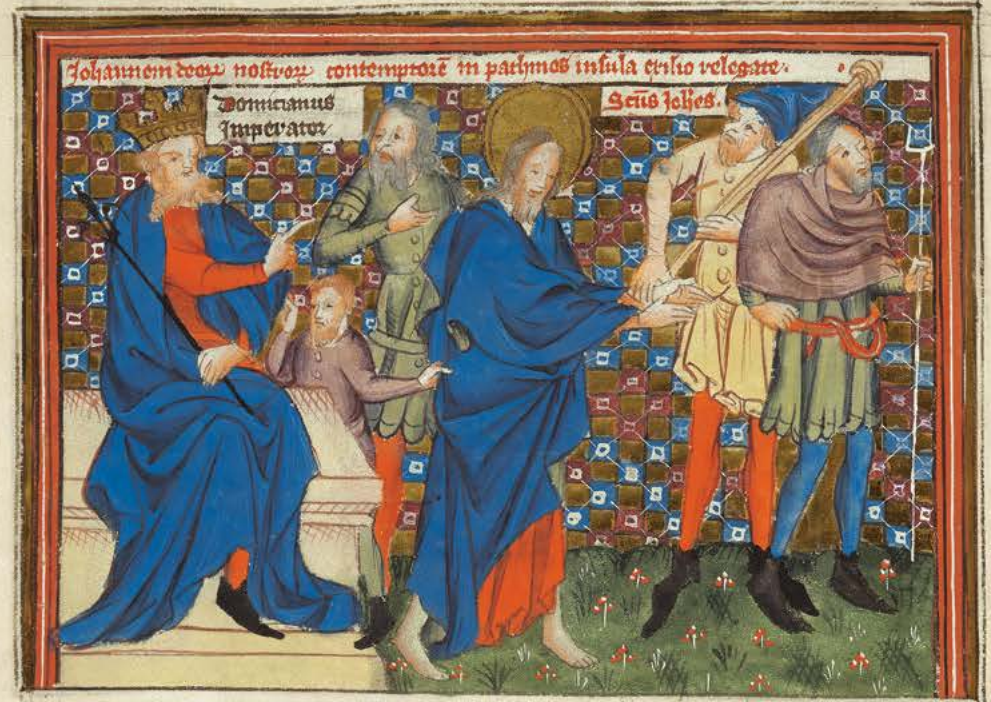 Johannem deoꝝ nostroꝝ contemptorē in pathmos insula exilio relegate.
Domicianus
Imperator
Sctūs Johēs.